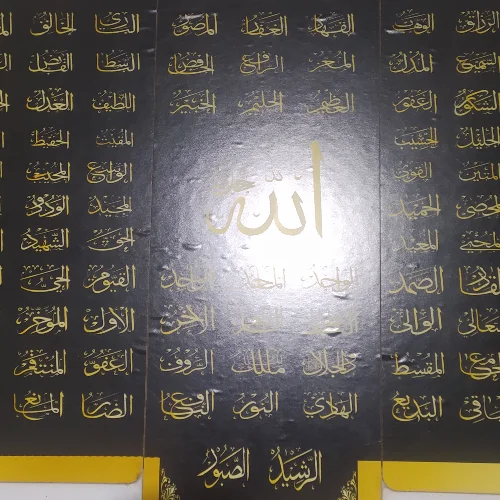 الرزاق الوهاب القهار الغفار المصور البارئ الخالق
السميع المذل المعز الرافع الخافض الباسط القابض
الشكور الغفور العظيم الحليم الخبير اللطيف العدل
الجليل الحسيب المقيت الحفيظ
المتين القوي الواسع المجيب
المحصي الحميد المجيد الودود
الله
المحيي المعيد الحق الشهيد
القادر الصمد الواحد الماجد الواجد القيوم الحي
الوالي الآخر الأول المؤخر
المقسط مالك الرؤوف العفو المنتقم
الباقي البديع الهادي النور النافع الضار المانع
الرشيد الصبور